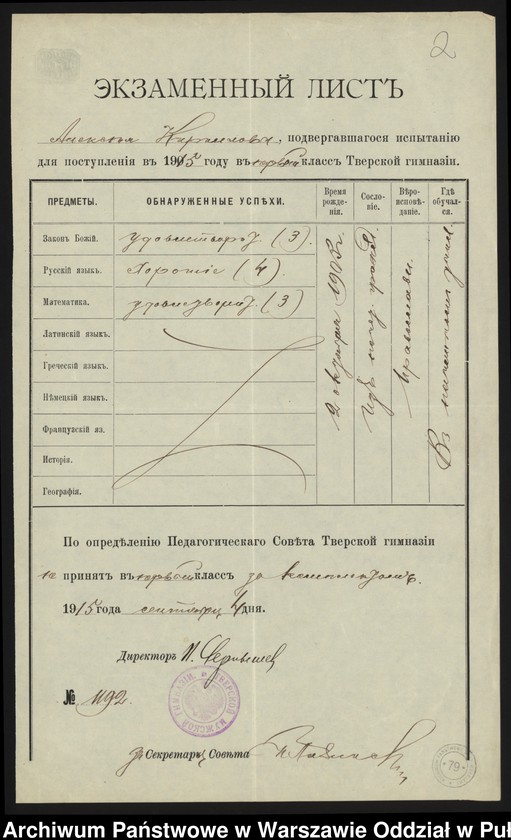 2
ЭКЗАМЕННЫЙ ЛИСТЪ
Алексѣя Кириллова, подвергавшагося испытанію
для поступленія въ 1915 году въ первый классъ Тверской гимназіи.
ПРЕДМЕТЫ. ОБНАРУЖЕННЫЕ УСПѢХИ. Время рожденія. Сословіе. Вѣроисповѣданіе. Гдѣ обучался.
Законъ Божій. удовлетворит. (3)
Русскій языкъ. Хорошіе (4)
Математика. удовлетворит. (3)
Латинскій языкъ.
Греческій языкъ.
Нѣмецкій языкъ.
Французскій яз.
Исторія.
Географія.
2 октября 1905 г.
Изъ
православн.
Въ
По опредѣленію Педагогическаго Совѣта Тверской гимназіи
не принятъ въ первый классъ за комплектомъ.
1915 года сентября 4 дня.
Директоръ
№ 1192.
ТВЕРСКОЙ МУЖСКОЙ ГИМНАЗІИ
За Секретаря Совѣта
79
Archiwum Państwowe w Warszawie Oddział w Puł